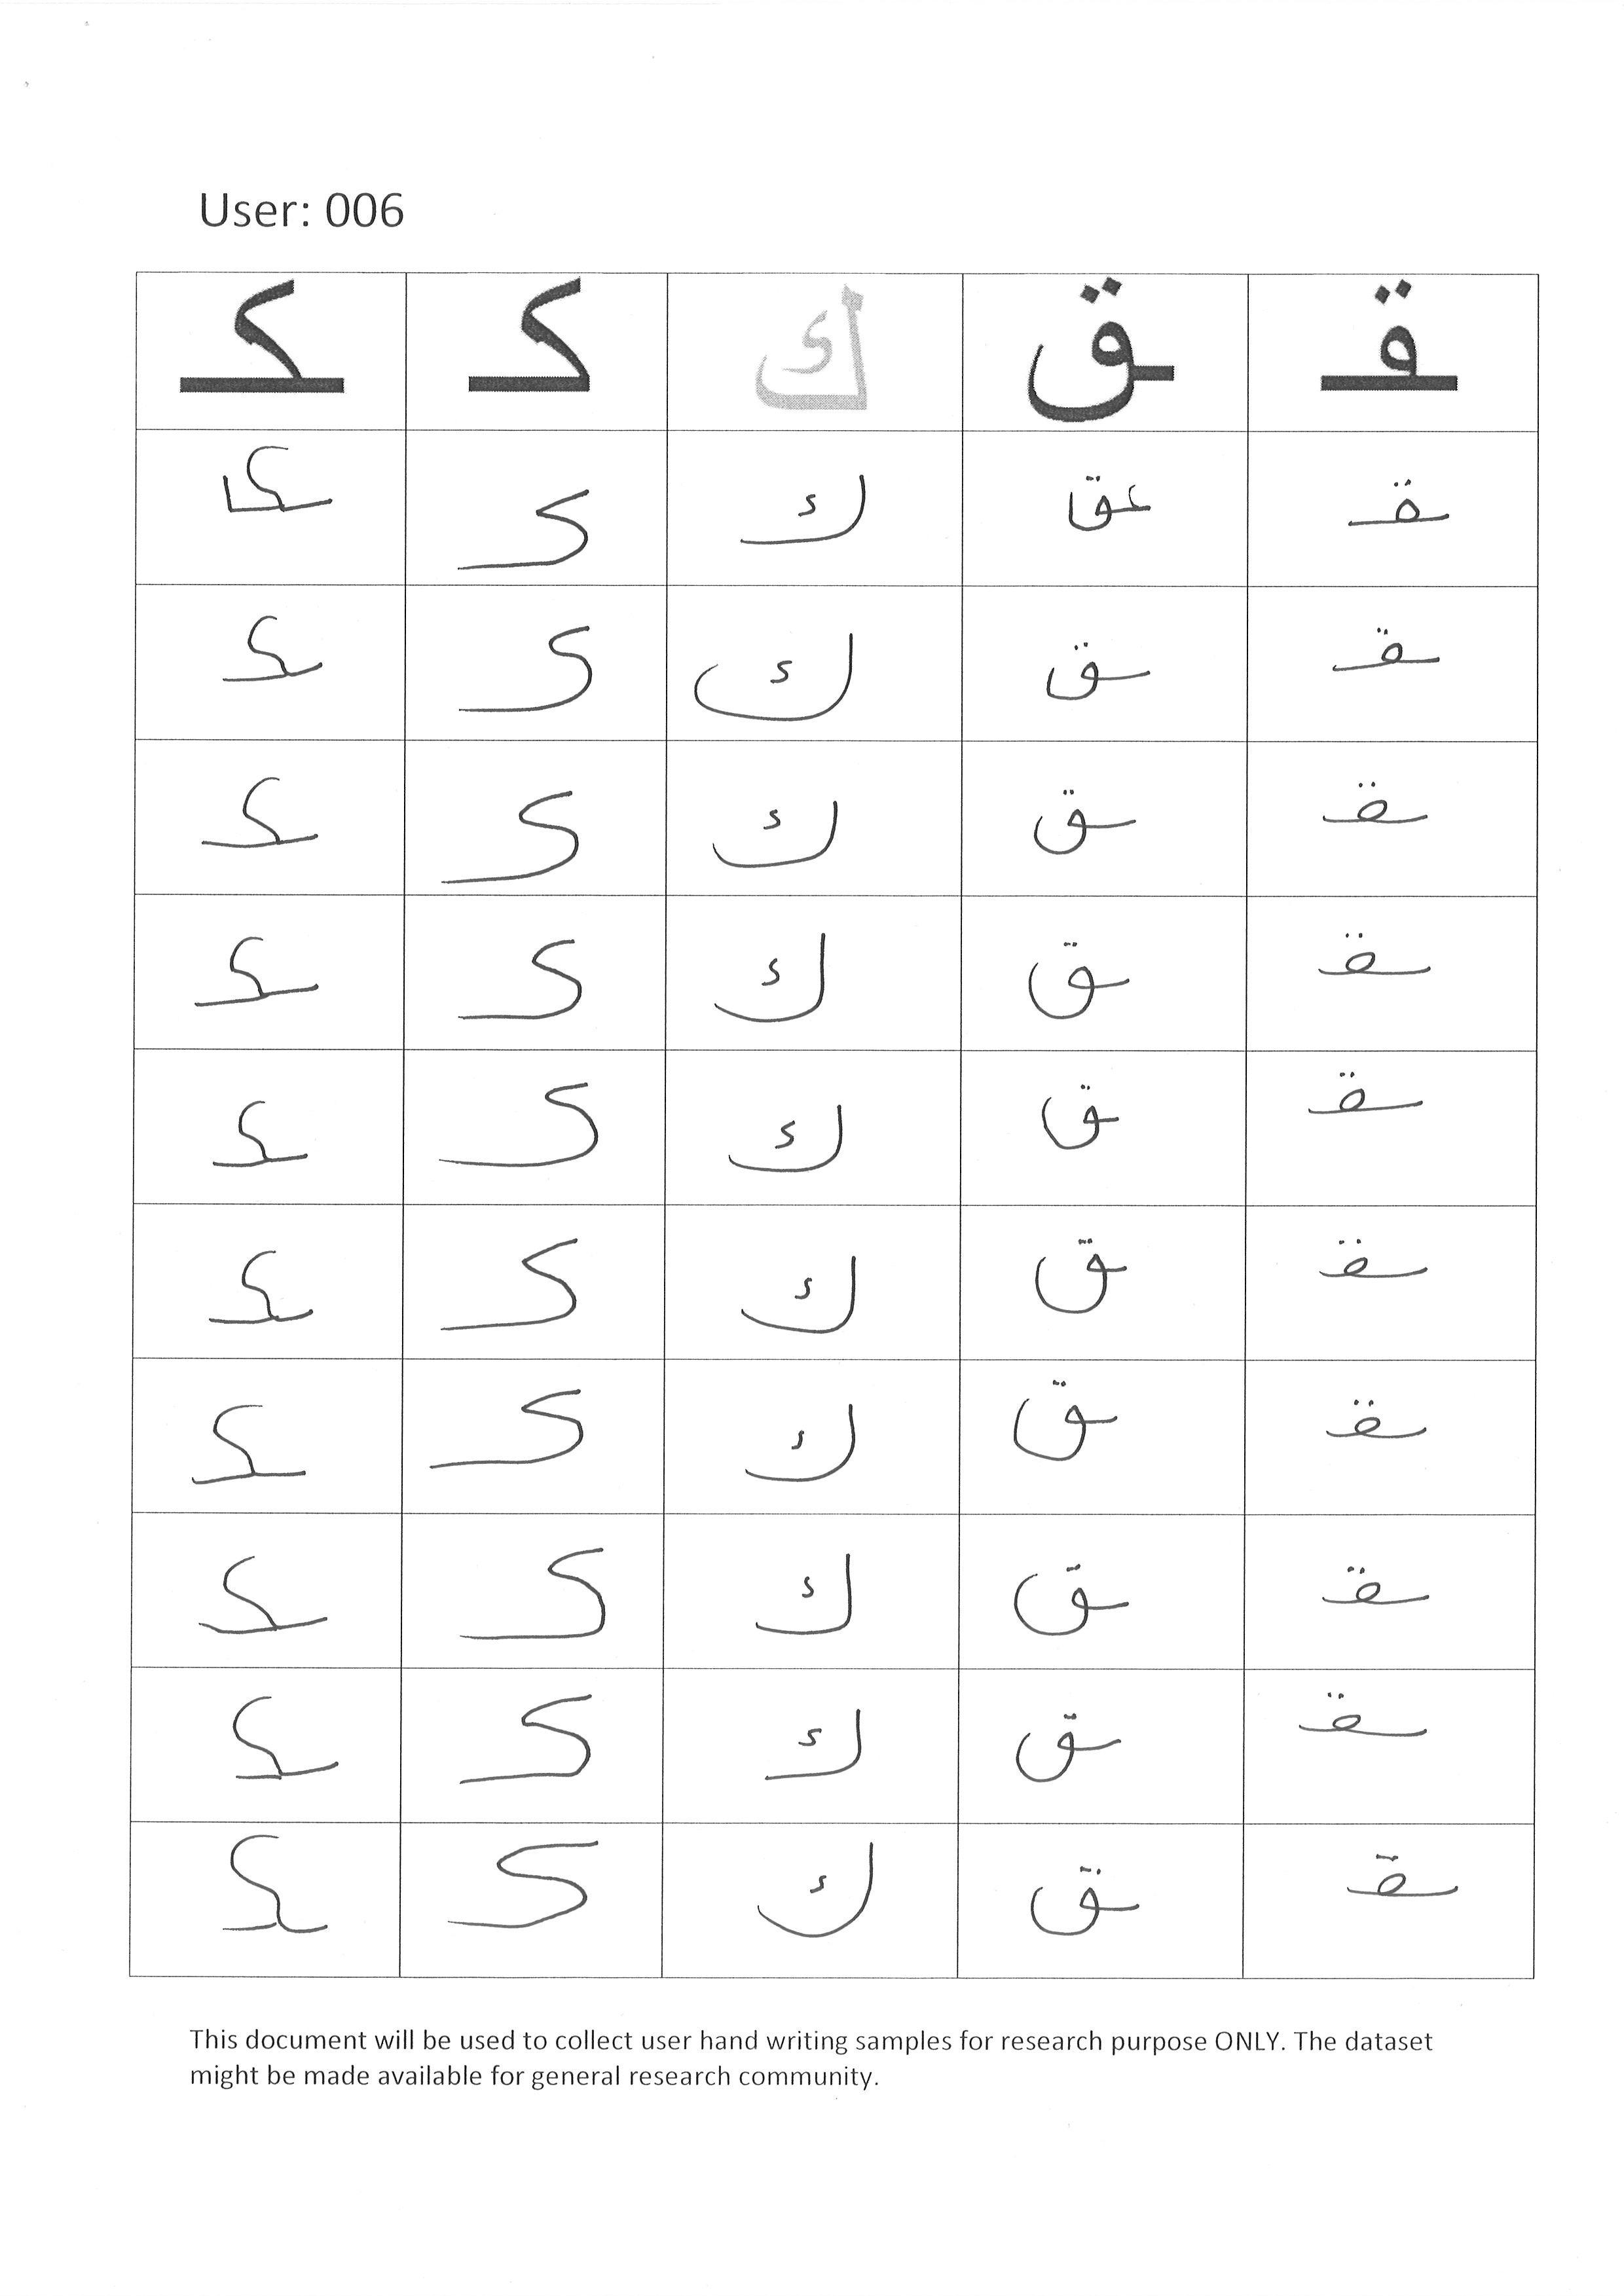 User: 006
ـكـ كـ ك ـق ـقـ
ـكـ كـ ك عق ـقـ
ـكـ كـ ك ـق ـقـ
ـكـ كـ ك ـق ـقـ
ـكـ كـ ك ـق ـقـ
ـكـ كـ ك ـق ـقـ
ـكـ كـ ك ـق ـقـ
ـكـ كـ ك ـق ـقـ
ـكـ كـ ك ـق ـقـ
ـكـ كـ ك ـق ـقـ
ـكـ كـ ك ـق ـقـ
This document will be used to collect user hand writing samples for research purpose ONLY. The dataset
might be made available for general research community.